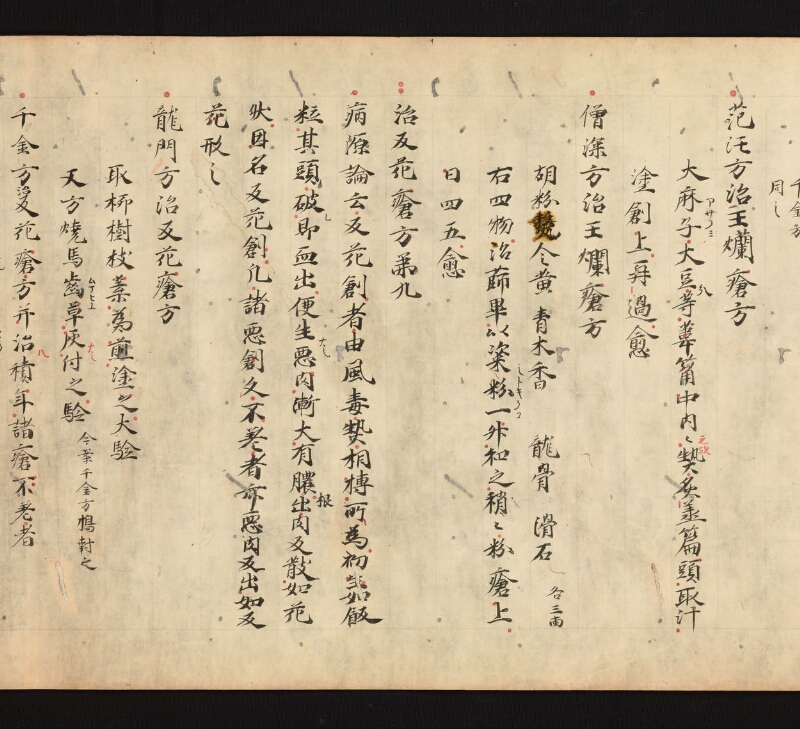 同之
范汪方治王爛瘡方
大麻子大豆等葦筩中内〻熱炙葦篇頭取汁
塗創上再過愈
僧深方治王爛瘡方
胡粉 令黄 青木香 龍骨 滑石 各三両
右四物治篩畢以粢粉一升和之稍〻粉瘡上
日四五愈
治反花瘡方第九
病源論云反花創者由風毒熱相摶所為初生如飯
粒其頭破即血出便生悪肉漸大有膿出肉反散如花
状因名反花創凡諸悪創久不差者亦悪肉反出如反
花形之
龍門方治反花瘡方
取柳樹枝葉為煎塗之大験
又方焼馬歯草灰付之験 今案千金方㯶封之
千金方反花瘡方并治積年諸瘡不差者